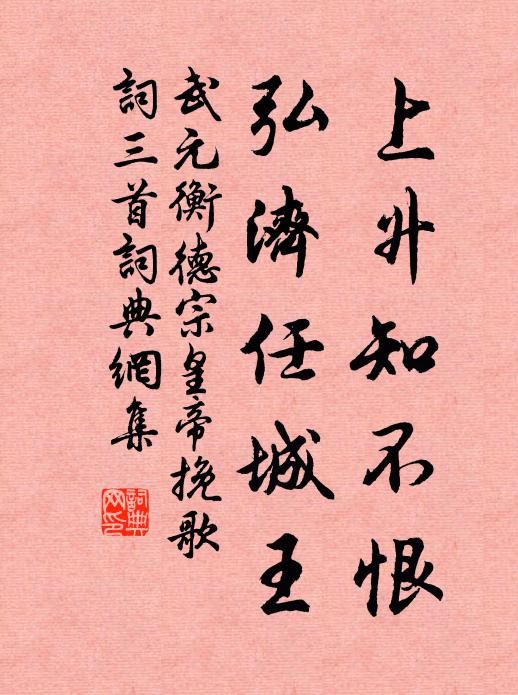 上升知不恨
弘濟任城王
武元衡德宗皇帝挽歌
詞三首詞典網集
詞典網印